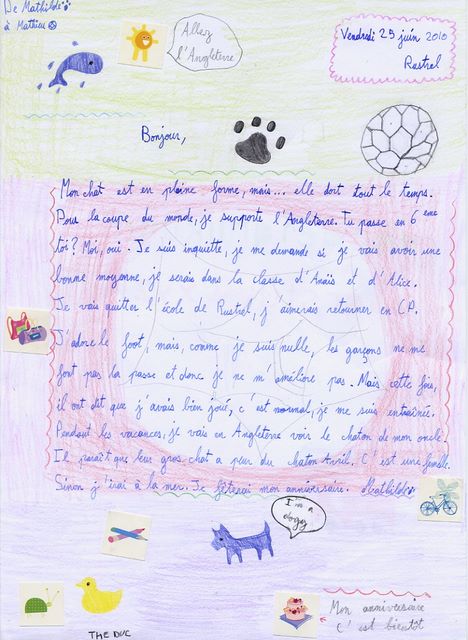 De Mathilde
à Mathieu
Allez
l'Angleterre
Vendredi 25 juin 2010
Rustrel
Bonjour,
Mon chat est en pleine forme, mais... elle dort tout le temps.
Pour la coupe du monde, je supporte l'Angleterre. Tu passe en 6 eme
toi? Moi, oui. Je suis inquiette, je me demande si je vais avoir une
bonne moyenne, je serais dans la classe d'Anaïs et d'Alice.
Je vais quitter l'école de Rustrel, j'aimerais retourner en CP.
J'adore le foot, mais, comme je suis nulle, les garçons ne me
font pas la passe et donc je ne m'améliore pas. Mais cette fois,
il ont dit que j'avais bien joué, c'est normal, je me suis entraînée.
Pendant les vacances, je vais en Angleterre voir le chaton de mon oncle.
Il paraît que leur gros chat a peur du chaton Avril. C'est une femelle.
Sinon j'irai à la mer. Je fêterai mon anniversaire. Mathilde
I'm a
dog
Mon anniversaire
c'est bientôt
THE DUC